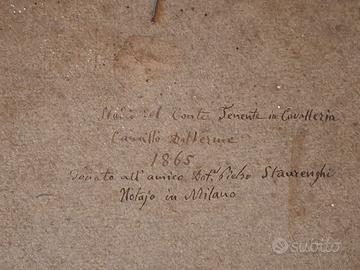 Studio del Conte Tenente in Cavalleria
Camillo
1865
Donato all'amico Dotr. Pietro Staurenghi
Notajo in Milano
subito